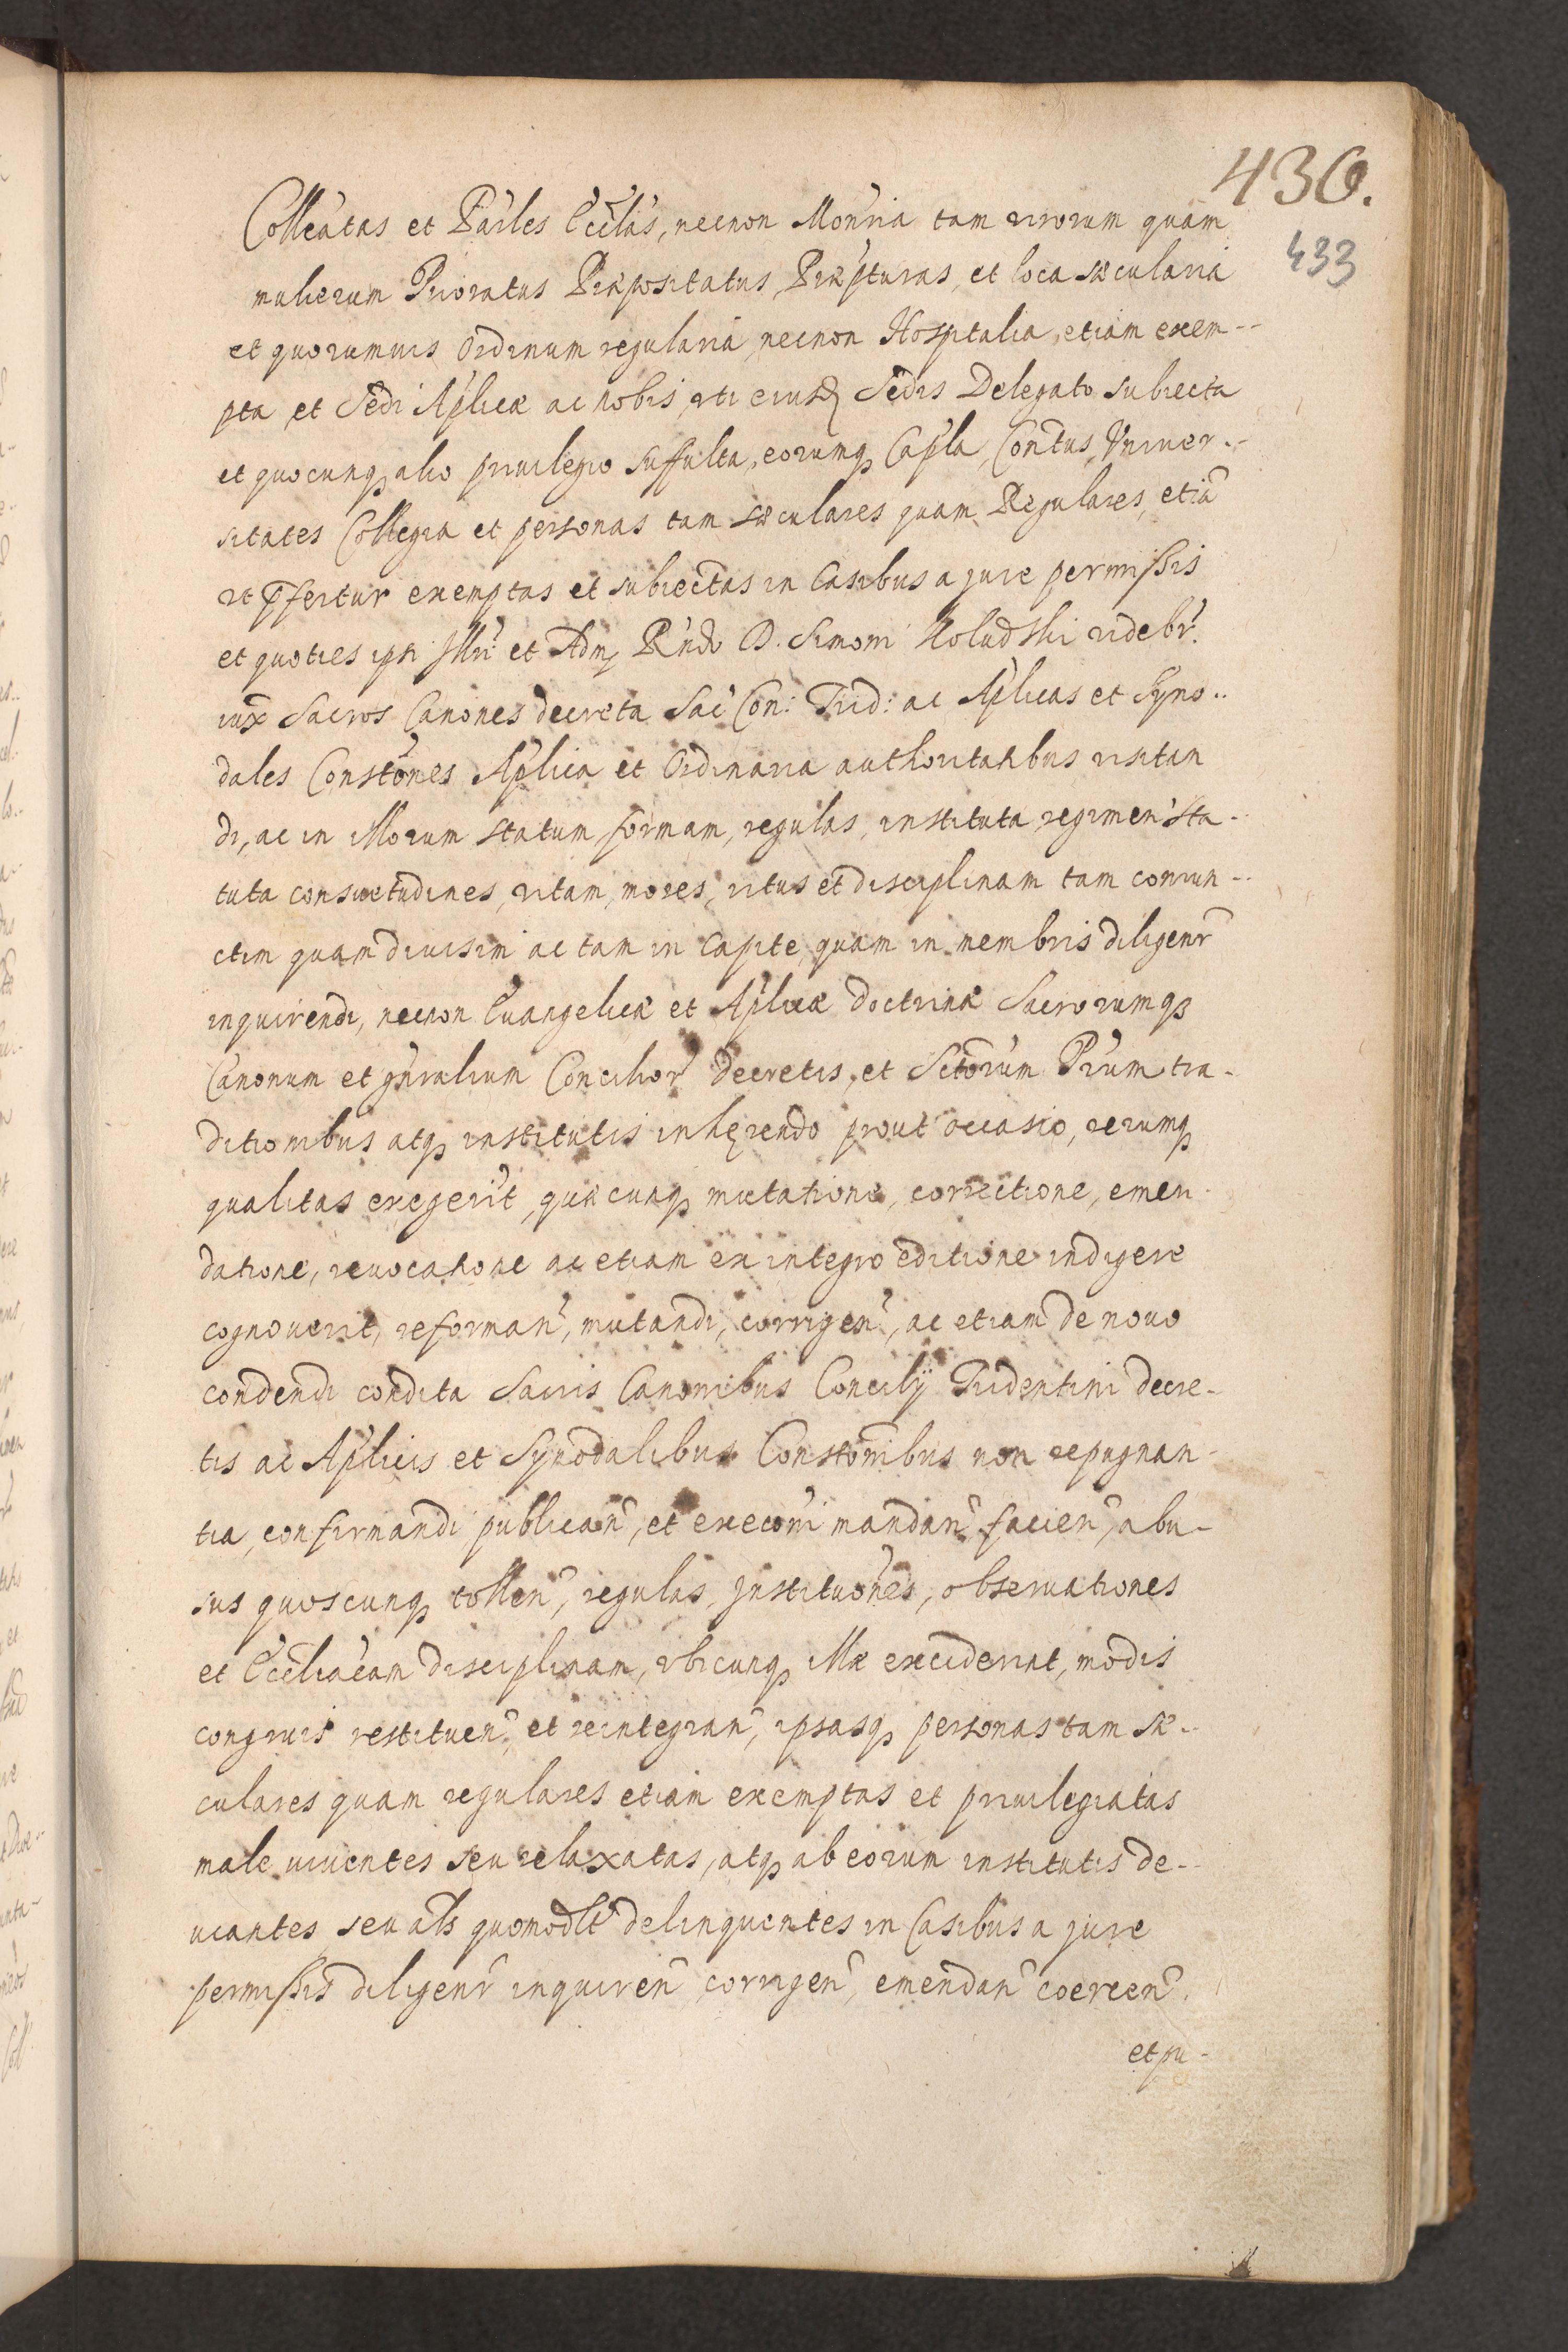 430.
433
Colleatas et Pâiles Ecclas, necnon Monria tam virorum quam
mulierum Prioratus Præpositatus, Præpturas, et loca sæcularia
et quorumuis Ordinum regularia necnon Hospitalia, etiam exem--
pta et Sedi Aplicæ ac nobis vti eiusd Sedis Delegato subiecta
et quocunq alio priuilegio suffulta, eorumq Capla, Contus, Vniuer--
sitates Collegia et personas tam sæculares quam Regulares, etiã
vt pfertur exemptas et subiectas in Casibus a jure permissis
et quoties ipsi Illri et Adm Rndo D. Simoni Koludzki videbr.
iux Sacros Canones decreta Sac Con: Trid: ac Aplicas et Syno--
dales Constones Aplica et Ordinaria authoritatibus visitan
di, ac in illorum statum, formam, regulas, instituta regimen sta-
tuta consuetudines, vitam, mores, ritus et disciplinam tam coniun--
ctim quam diuisim ac tam in Capite, quam in membris diligenr
inquirendi, necnon Euangelicæ et Aplicæ doctrinæ Sacrorumq
Canonum et gnralium Concilior decretis, et Sctorum Prum tra-
ditionibus atq institutis inhęrendo prout occasio, rerumq
qualitas exegerit, quæcunq mutatione, correctione, emen-
datione, reuocatione ac etiam ex integro editione indigere
cognouerit, reforman, mutandi, corrigen, ac etiam de nouo
condendi condita Sacris Canonibus Concilij Tridentini decre-
tis ac Aplicis et Synodalibus Constonibus non repugnan-
tia, confirmandi publican, et execoni mandan, facien, abu-
sus quoscunq tollen, regulas, jnstituones, obseruationes
et Eccliacam disciplinam, vbicunq illæ exciderint, modis
congruis restituen, et reintegran, ipsasq personas tam sæ--
culares quam regulares etiam exemptas et priuilegiatas
male viuentes seu relaxatas, atq ab eorum institutis de--
uiantes seu als quomodlt delinquentes in Casibus a jure
permissis diligenr inquiren corrigen, emendan coercen,
et pu-